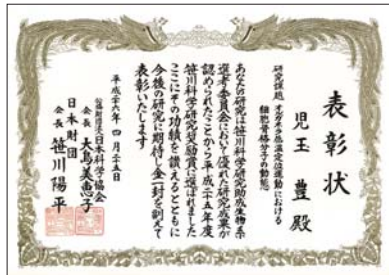 表彰状
児玉 豊 殿
研究課題 オルガネラ低温定位運動における
細胞骨格分子の動態
あなたの研究は笹川科学研究助成生物系
選考委員会において優れた研究成果が
認められたことから平成二十五年度
笹川科学研究奨励賞に選ばれました
ここにその功績を讃えるとともに
今後の研究に期待し金一封を副えて
表彰いたします
平成二十六年 四月二十五日
公益財団法人日本科学協会
会長 大島美恵子
日本財団
会長 笹川陽平